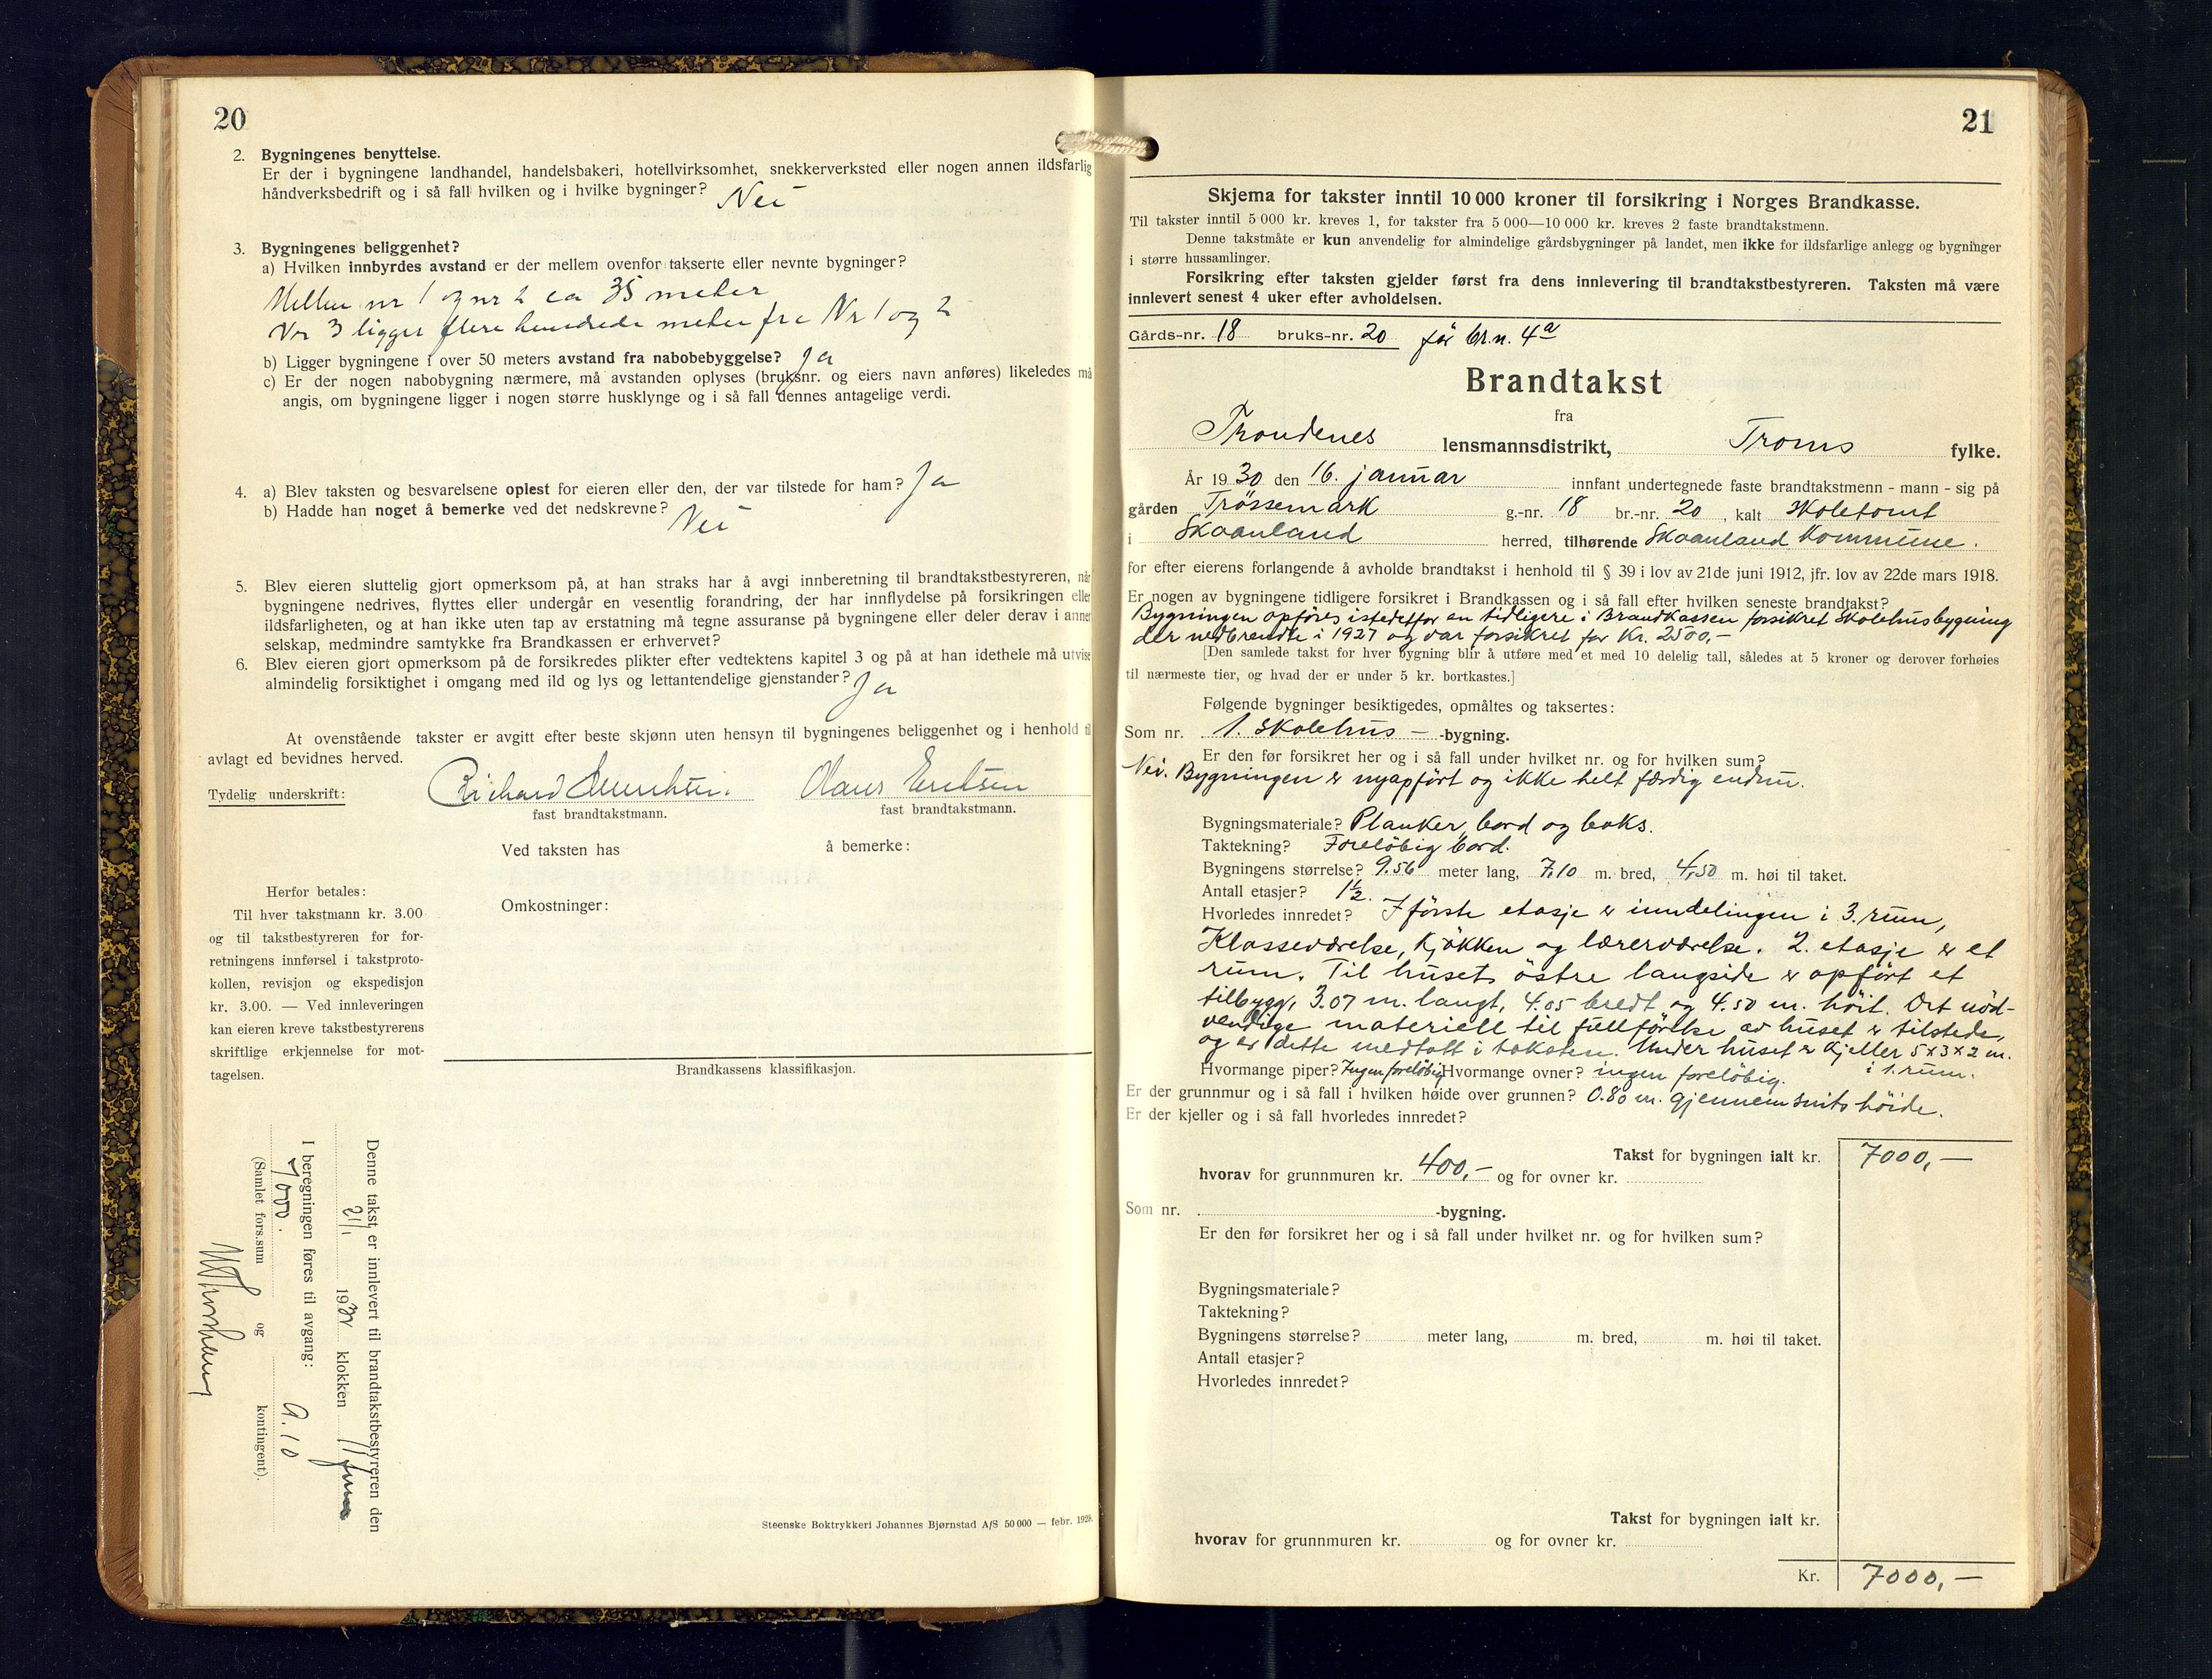 20
2. Bygningenes benyttelse.
Er der i bygningene landhandel, handelsbakeri, hotellvirksomhet, snekkerverksted eller nogen annen ildsfarlig
håndverksbedrift og i så fall hvilken og i hvilke bygninger? Nei
3. Bygningenes beliggenhet?
a) Hvilken innbyrdes avstand er der mellem ovenfor takserte eller nevnte bygninger?
Mellem nr 1 og nr 2 ca 35 meter
Nr 3 ligger flere hundrede meter fra Nr 1 og 2
b) Ligger bygningene i over 50 meters avstand fra nabobebyggelse? Ja
c) Er der nogen nabobygning nærmere, må avstanden oplyses (bruksnr. og eiers navn anføres) likeledes må
angis, om bygningene ligger i nogen større husklynge og i så fall dennes antagelige verdi.
4. a) Blev taksten og besvarelsene oplest for eieren eller den, der var tilstede for ham? Ja
b) Hadde han noget å bemerke ved det nedskrevne? Nei
5. Blev eieren sluttelig gjort opmerksom på, at han straks har å avgi innberetning til brandtakstbestyreren, når
bygningene nedrives, flyttes eller undergår en vesentlig forandring, der har innflydelse på forsikringen eller
ildsfarligheten, og at han ikke uten tap av erstatning må tegne assuranse på bygningene eller deler derav i annet
selskap, medmindre samtykke fra Brandkassen er erhvervet?
6. Blev eieren gjort opmerksom på de forsikredes plikter efter vedtektens kapitel 3 og på at han idethele må utvise
almindelig forsiktighet i omgang med ild og lys og lettantendelige gjenstander? Ja
At ovenstående takster er avgitt efter beste skjønn uten hensyn til bygningenes beliggenhet og i henhold til
avlagt ed bevidnes herved.
Tydelig underskrift: Richard Olaus
fast brandtakstmann. fast brandtakstmann.
Ved taksten has å bemerke:
Herfor betales:
Til hver takstmann kr. 3.00
og til takstbestyreren for for-
retningens innførsel i takstproto-
kollen, revisjon og ekspedisjon
kr. 3.00. — Ved innleveringen
kan eieren kreve takstbestyrerens
skriftlige erkjennelse for mot-
tagelsen.
Omkostninger:
Brandkassens klassifikasjon.
Denne takst er innlevert til brandtakstbestyreren den
21/1 1930 klokken 11
I beregningen føres til avgang:
7000. 9.10
(Samlet fors.sum og kontingent).
Steenske Boktrykkeri Johannes Bjørnstad A/S 50 000 — febr. 1928.
21
Skjema for takster inntil 10 000 kroner til forsikring i Norges Brandkasse.
Til takster inntil 5 000 kr. kreves 1, for takster fra 5 000—10 000 kr. kreves 2 faste brandtakstmenn.
Denne takstmåte er kun anvendelig for almindelige gårdsbygninger på landet, men ikke for ildsfarlige anlegg og bygninger
i større hussamlinger.
Forsikring efter taksten gjelder først fra dens innlevering til brandtakstbestyreren. Taksten må være
innlevert senest 4 uker efter avholdelsen.
Gårds-nr. 18 bruks-nr. 20 før br.n. 4a
Brandtakst
fra
Trondenes lensmannsdistrikt, Troms fylke.
År 1930 den 16. januar innfant undertegnede faste brandtakstmenn - mann - sig på
gården Trössemark g.-nr. 18 br.-nr. 20, kalt Skoletomt
i Skaanland herred, tilhørende Skaanland Kommune.
for efter eierens forlangende å avholde brandtakst i henhold til § 39 i lov av 21de juni 1912, jfr. lov av 22de mars 1918.
Er nogen av bygningene tidligere forsikret i Brandkassen og i så fall efter hvilken seneste brandtakst?
Bygningen opføres istedetfor en tidligere i Brandkassen forsikret Skolehusbygning
der nedbrendte i 1927 og var forsikret for Kr. 2500,-
[Den samlede takst for hver bygning blir å utføre med et med 10 delelig tall, således at 5 kroner og derover forhøies
til nærmeste tier, og hvad der er under 5 kr. bortkastes.]
Følgende bygninger besiktigedes, opmåltes og taksertes:
Som nr. 1. Skolehus — -bygning.
Er den før forsikret her og i så fall under hvilket nr. og for hvilken sum?
Nei. Bygningen er nyopført og ikke helt færdig endnu.
Bygningsmateriale? Planker, bord og boks.
Taktekning? Foreløbig bord.
Bygningens størrelse? 9.56 meter lang, 7,10 m. bred, 4,50 m. høi til taket.
Antall etasjer? 1½.
Hvorledes innredet? I første etasje er inndelingen i 3. rum,
Klasseværelse, Kjøkken og lærerværelse. 2. etasje er et
rum. Til husets østre langside er opført et
tilbygg, 3.07 m. langt, 4.05 bredt og 4.50 m. höit. Det nöd-
vendige materiell til fullförelse av huset er tilstede,
og er dette medtatt i taksten. Under huset er Kjeller 5x3x2 m.
i 1. rum.
Hvormange piper? Ingen foreløbig Hvormange ovner? ingen foreløbig.
Er der grunnmur og i så fall i hvilken høide over grunnen? 0.80 m. gjennemsnits höide.
Er der kjeller og i så fall hvorledes innredet?
Takst for bygningen ialt kr. 7000,—
hvorav for grunnmuren kr. 400,- og for ovner kr.
Som nr. -bygning.
Er den før forsikret her og i så fall under hvilket nr. og for hvilken sum?
Bygningsmateriale?
Taktekning?
Bygningens størrelse? meter lang, m. bred, m. høi til taket.
Antall etasjer?
Hvorledes innredet?
Takst for bygningen ialt kr.
hvorav for grunnmuren kr. og for ovner kr.
Kr. 7000,—